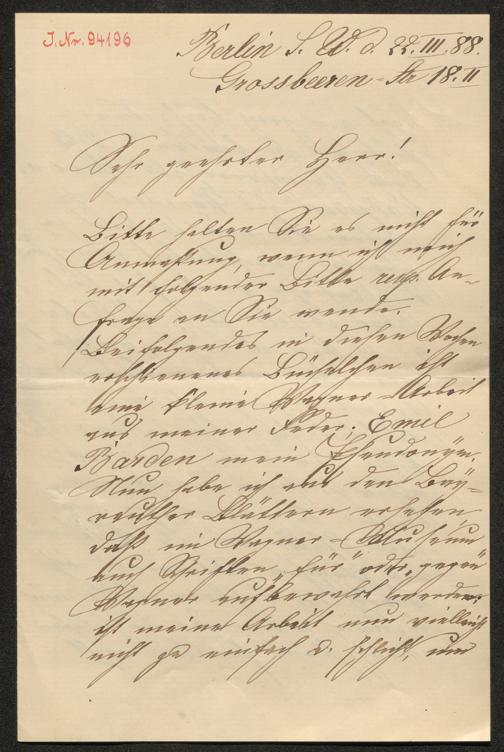 J. Nr. 94196
Berlin S. W. d. 22. III. 88.
Grossbeeren-Str 18. II
Sehr geehrter Herr!
Bitte halten Sie es nicht für
Anmaßung, wenn ich mich
mit folgender Bitte resp. An-
frage an Sie wende.
Beifolgendes in diesen Wochen
erschienenes Büchelchen ist
eine kleine Wagner-Arbeit
aus meiner Feder; Emil
Barden mein Pseudonym.
Nun habe ich aus den Bay-
reuther Blättern ersehen
daß im Wagner-Museum
auch Schriften „für“ oder „gegen“
Wagner aufbewahrt werden;
ist meine Arbeit nun vielleicht
nicht zu einfach u. schlicht, um